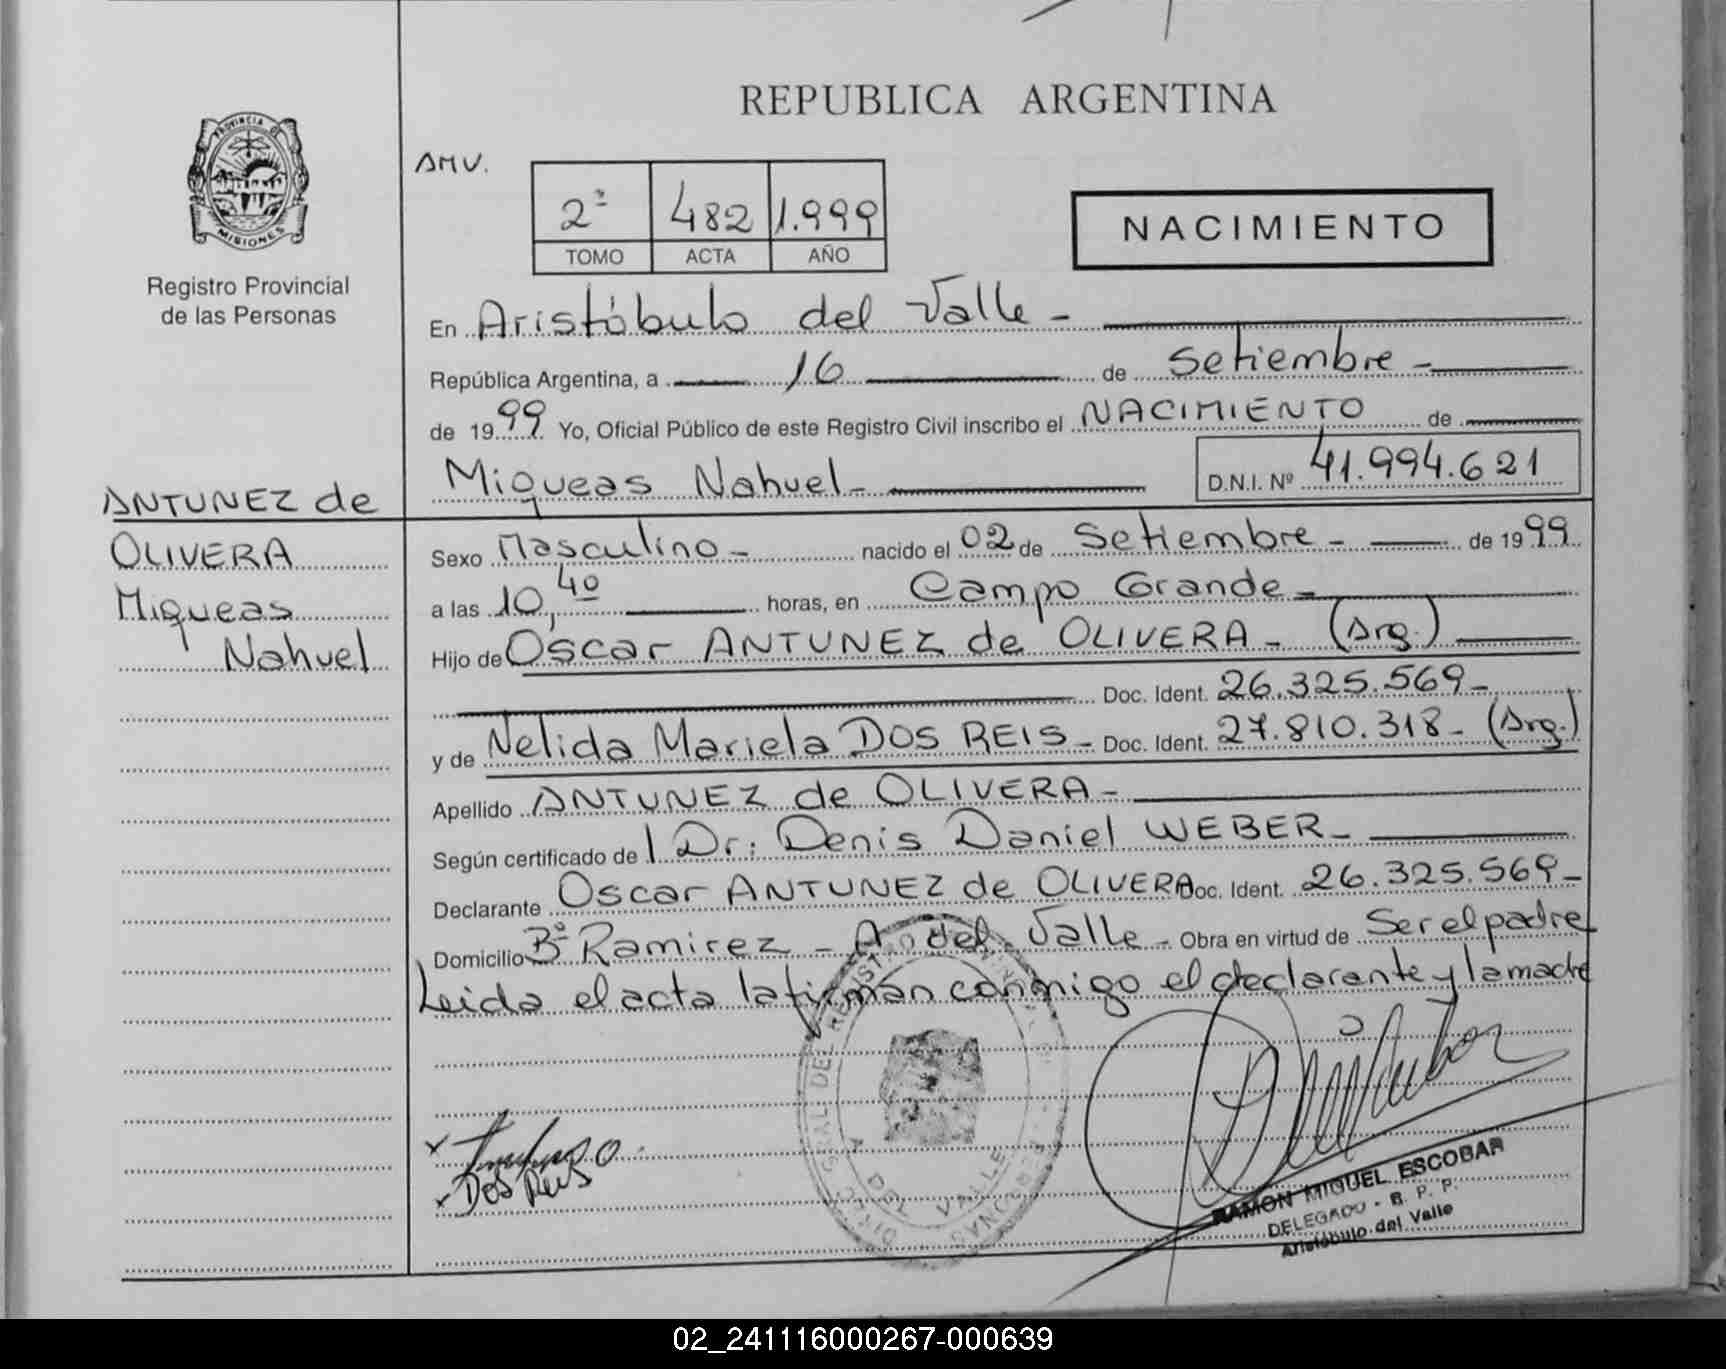 REPUBLICA ARGENTINA
PROVINCIA DE
MISIONES
Registro Provincial
de las Personas
AMV.
2º 482 1.999
TOMO ACTA AÑO
NACIMIENTO
En Aristóbulo del Valle -
República Argentina, a 16 de Setiembre -
de 1999 Yo, Oficial Público de este Registro Civil inscribo el NACIMIENTO de
Miqueas Nahuel - D.N.I. Nº 41.994.621
ANTUNEZ de
OLIVERA
Miqueas
Nahuel
Sexo Masculino - nacido el 02 de Setiembre - de 1999
a las 10,40 horas, en Campo Grande -
Hijo de Oscar ANTUNEZ de OLIVERA - (Arg.)
Doc. Ident. 26.325.569 -
y de Nelida Mariela DOS REIS - Doc. Ident. 27.810.318 - (Arg.)
Apellido ANTUNEZ de OLIVERA -
Según certificado de l Dr: Denis Daniel WEBER -
Declarante Oscar ANTUNEZ de OLIVERA Doc. Ident. 26.325.569 -
Domicilio Bº Ramirez - A. del Valle - Obra en virtud de Ser el padre
Leida el acta la firman conmigo el declarante y la madre
x
x Dos Reis
A. DEL VALLE
RAMON MIGUEL ESCOBAR
DELEGADO - R. P. P.
Aristóbulo del Valle
02_241116000267-000639